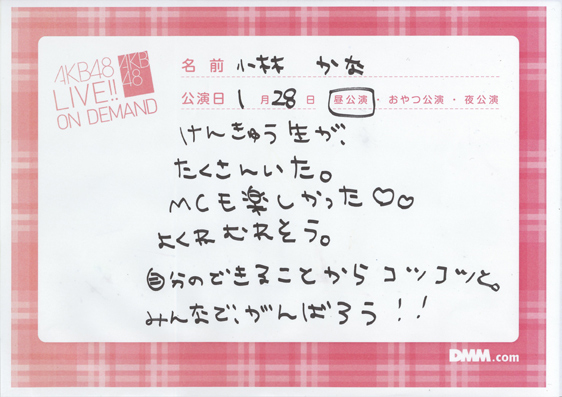 AKB48
LIVE!!
ON DEMAND
AKB
48
名前 小林 かな
公演日 1月28日 昼公演・おやつ公演・夜公演
けんきゅう生が、
たくさんいた。
MCも楽しかった♡♡
よくねむれそう。
自分のできることからコツコツと。
みんなで、がんばろう!!
DMM.com